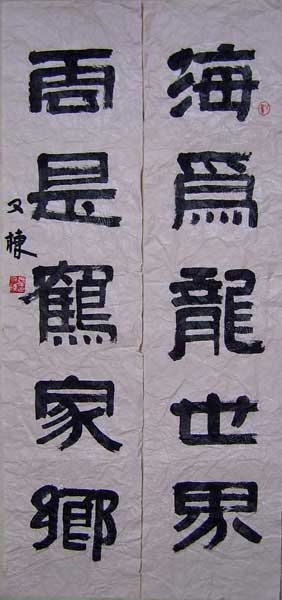 海爲龍世界
雲是鶴家鄉
又棟